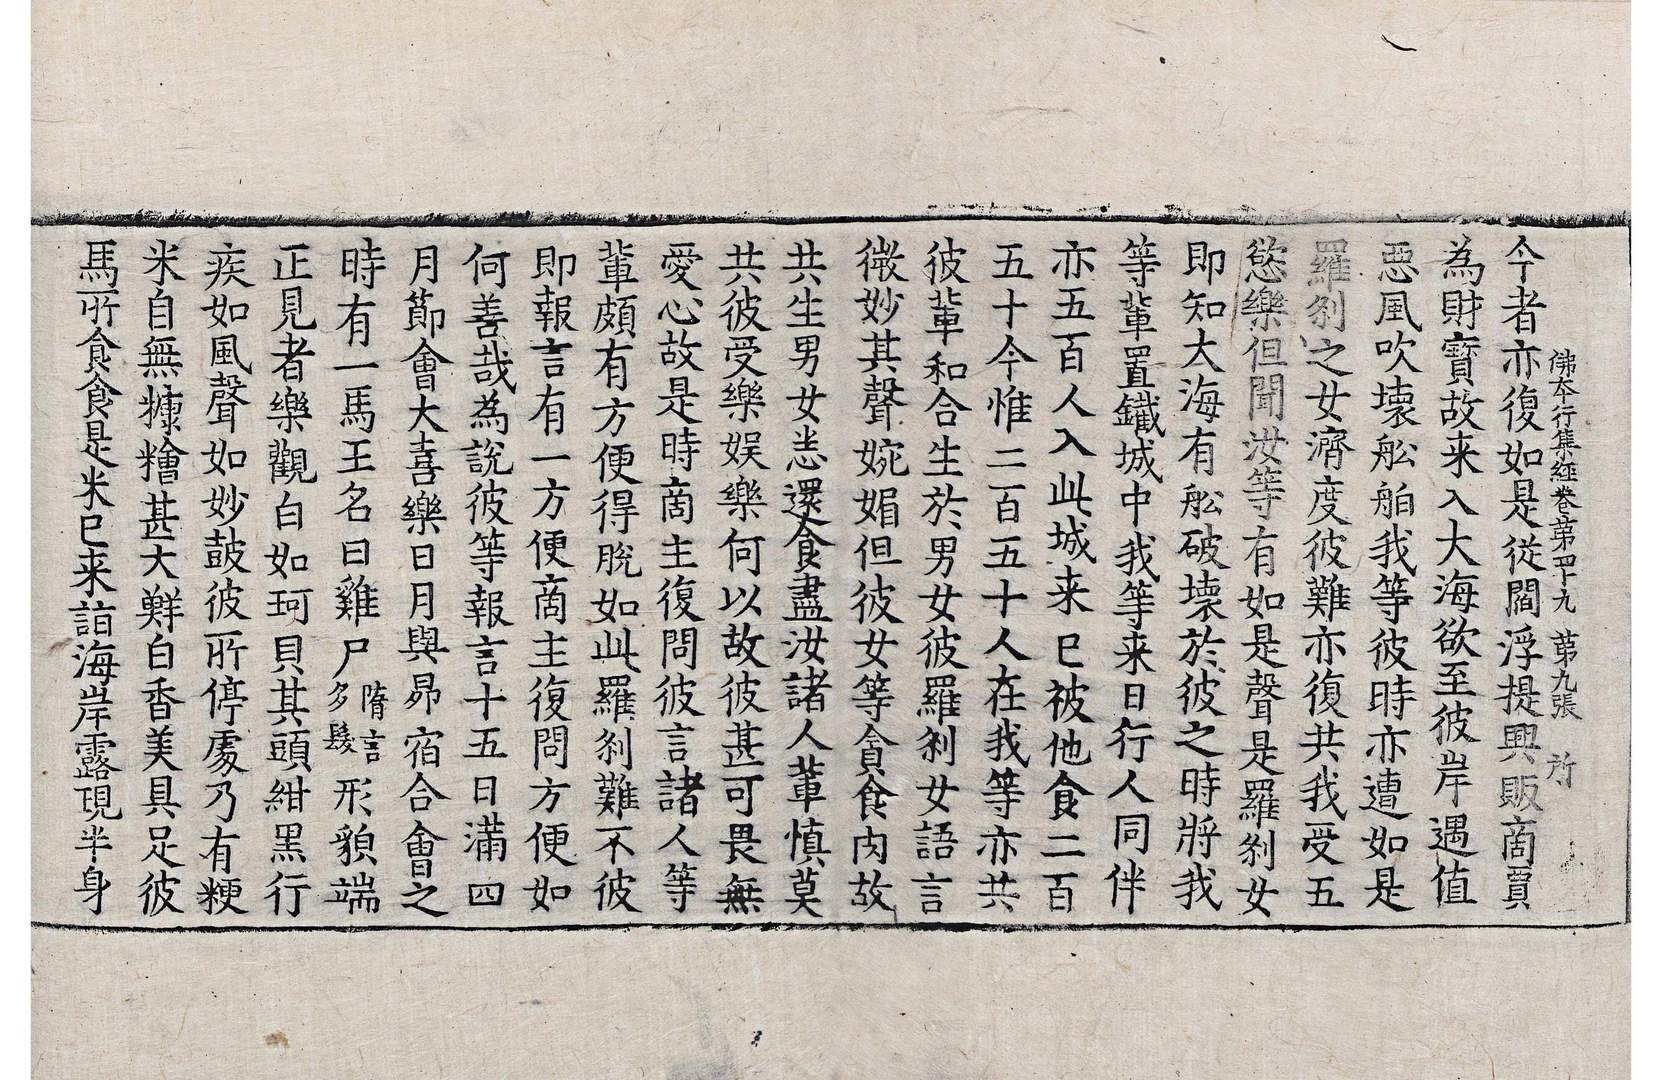 佛本行集經卷第四十九 第九張 所
今者亦復如是從閻浮提興販商賈
為財寳故来入大海欲至彼岸遇值
惡風吹壞舩舶我等彼時亦遭如是
羅刹之女濟度彼難亦復共我受五
慾樂但聞汝等有如是聲是羅刹女
即知大海有舩破壞於彼之時將我
等軰置鐵城中我等来日行人同伴
亦五百人入此城来已被他食二百
五十今惟二百五十人在我等亦共
彼軰和合生於男女彼羅刹女語言
微妙其聲婉媚但彼女等貪食肉故
共生男女恙還食盡汝諸人軰慎莫
共彼受樂娱樂何以故彼甚可畏無
愛心故是時商主復問彼言諸人等
軰頗有方便得脫如此羅刹難不彼
即報言有一方便商主復問方便如
何善哉為說彼等報言十五日滿四
月節會大喜樂日月與昴宿合會之
時有一馬王名曰雞尸隋言多髮形貌端
正見者樂觀白如珂貝其頭紺黑行
疾如風聲如妙鼓彼所停處乃有粳
米自無糠糩甚大鮮白香美具足彼
馬所食食是米已来詣海岸露現半身